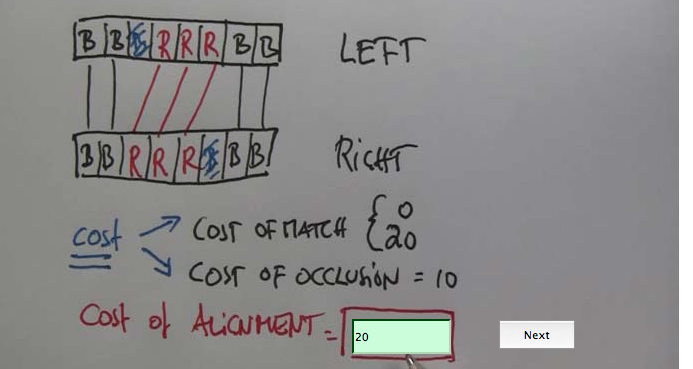 B B B R R R B B
LEFT
B B R R R B B B
RIGHT
COST
COST OF MATCH { 0
20
COST OF OCCLUSION = 10
COST OF ALIGNMENT =
20
Next